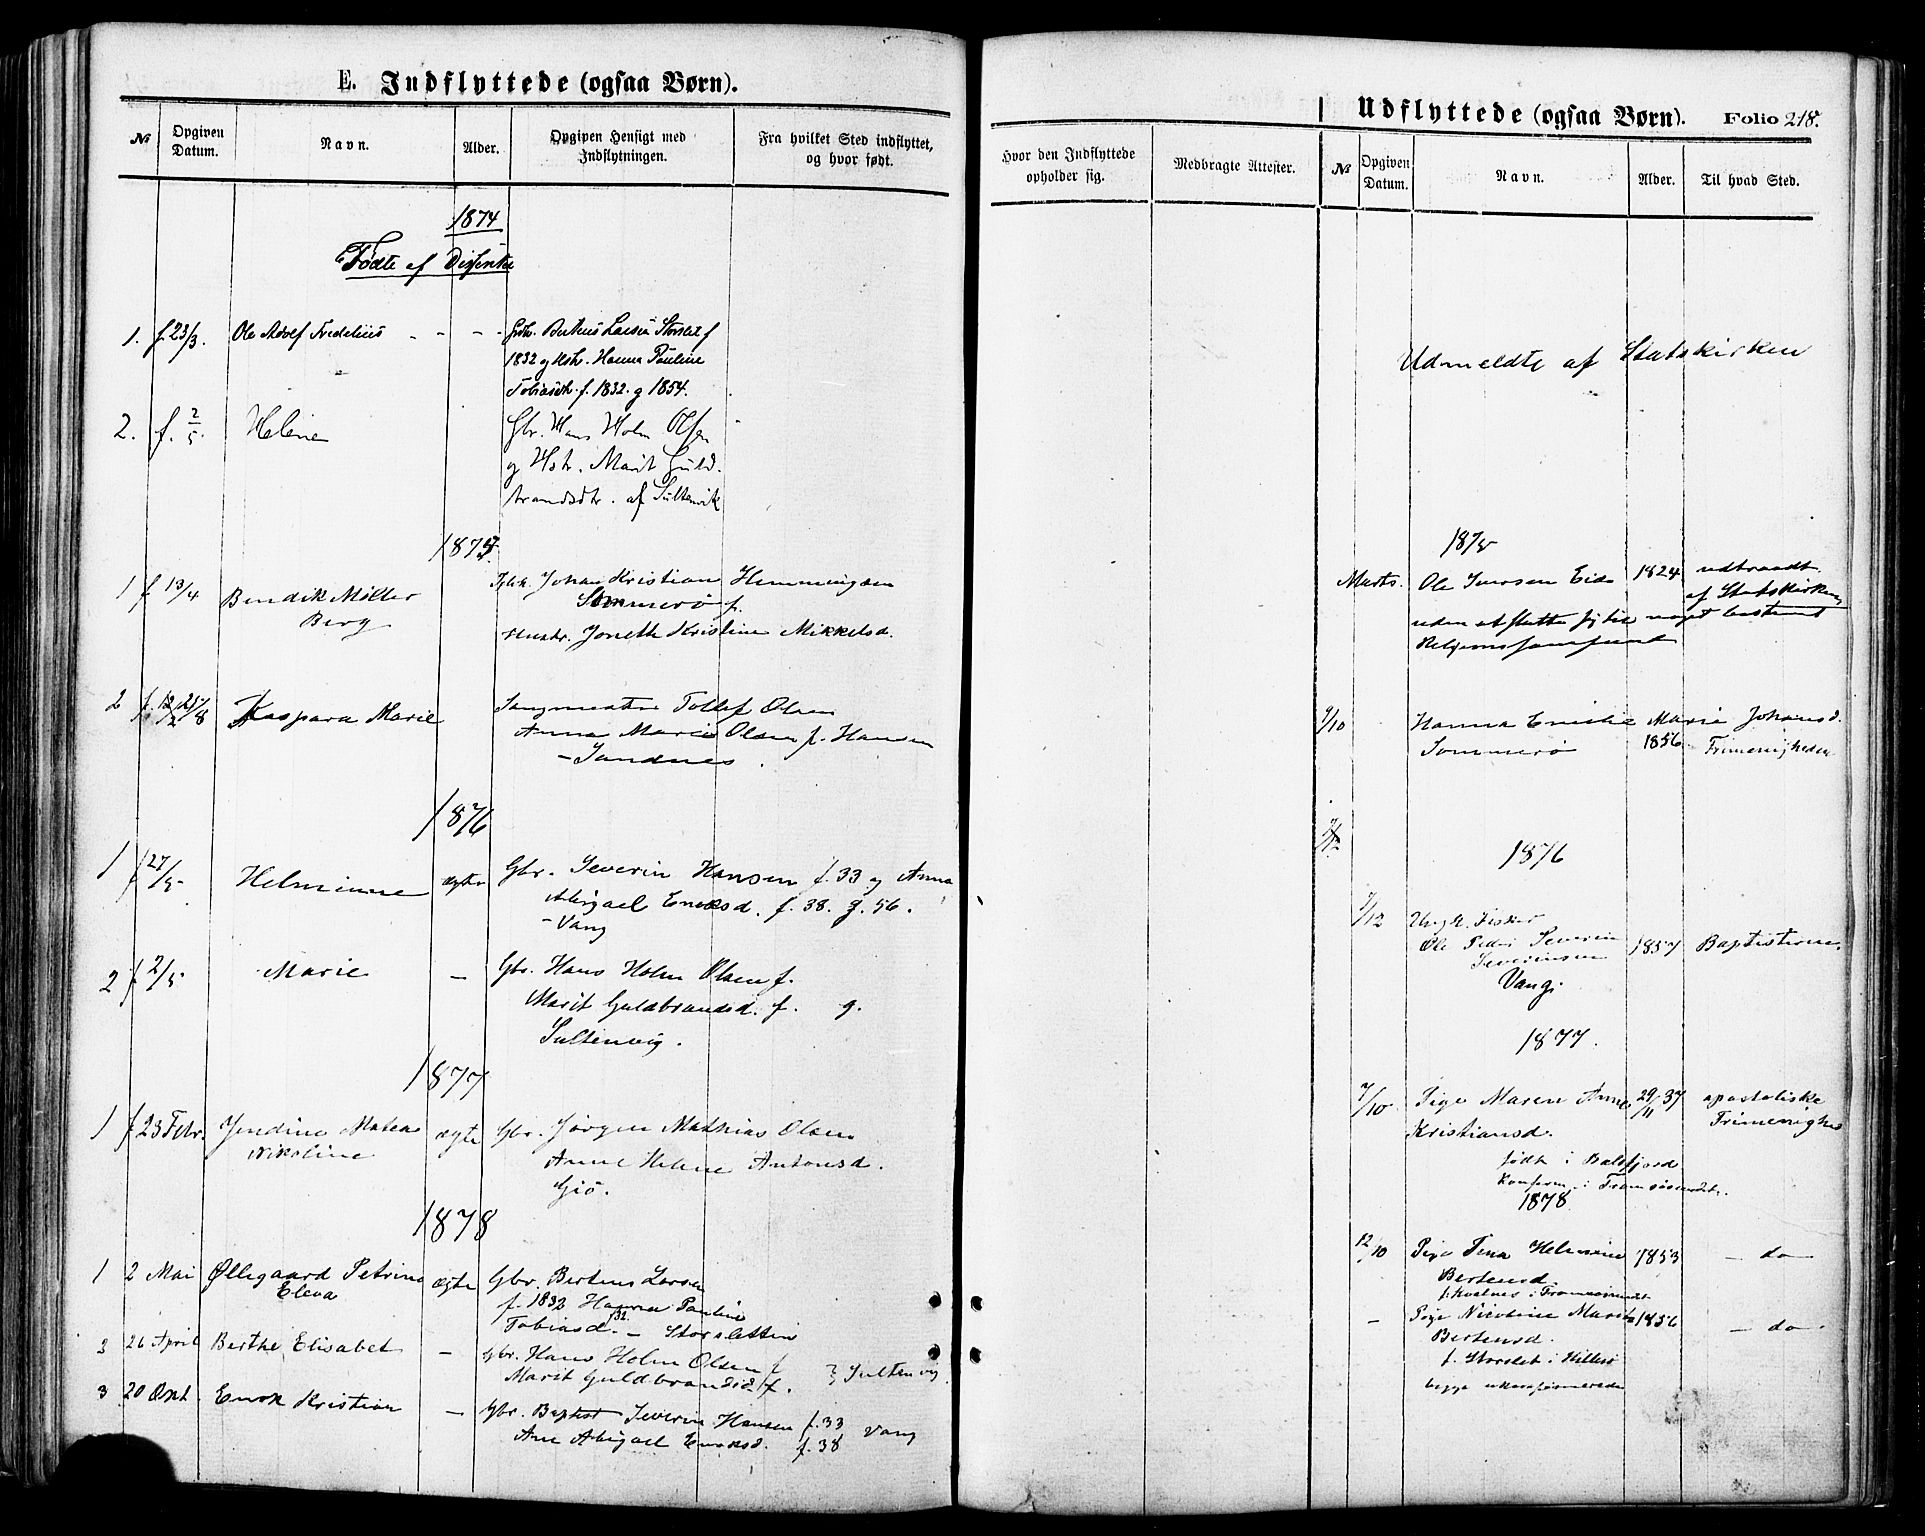 E. Indflyttede (ogsaa Børn).
№ Opgiven Datum. Navn. Alder. Opgiven Hensigt med Indflytningen. Fra hvilket Sted indflyttet, og hvor født.
1874
Fødte af Dissenter
1. f. 23/3. Ole Adolf Fredelius - - - Gbr. Berteus Larsen Storslet f
1832 og Hstr. Hanna Pauline
Tobiasdtr. f. 1832. g 1854.
2. f. 2/5. Heline Gbr. Hans Holm Olsen
og Hstr. Marit Guld-
brandsdtr. af Sultenvik
1875
1 f 13/4 Bendik Møller Johan Kristian Hemmingsen
Berg Sommerø f.
Hustr. Joneth Kristine Mikkelsd.
2 Kaspara Marie Sangmester Tollef Olsen
Anna Marie Olsen f. Hansen
- Sandnes.
1876
1 f 27/5 Helminne ægte Gbr. Severin Hansen f. 33 og Anna
Abigael Enoksd. f. 38. g. 56.
- Vang
2 f 2/5 Marie - Gbr. Hans Holm Olsen f.
Marit Guldbrandsd. f. g.
Sultenvig.
1877
1 f 23 Febr. Jendine Matea ægte Gbr. Jørgen Mathias Olsen
Nikoline Anne Helene Antonsd.
Giø.
1878
1 2 Mai Øllegaard Petrine ægte Gbr. Berteus Larsen
Eleva f. 1832 Hanna Pauline
Tobiasd. 32. - Storsletten
2 26 April Berthe Elisabet - Gbr. Hans Holm Olsen f
Marit Guldbrandsd. f. } Sultenvig
3 20 Okt. Enok Kristian - Gbr. Baptist Severin Hansen f. 33 Vang
Ane Abigael Enoksd. f. 38
Udflyttede (ogsaa Børn). Folio 218.
Hvor den Indflyttede opholder sig. Medbragte Attester. № Opgiven Datum. Navn. Alder. Til hvad Sted.
Udmeldte af Statskirken
1875
Marts. Ole Iversen Eide 1824 udtraadt
af Statskirken
uden at slutte sig til noget bestemt
Religionssamfund
9/10 Hanna Emilie Marie Johansd.
Sommerø 1856 - Frimenigheden
1876
7/12 Ungk. Fisker
Ole Peder Severin 1857 Baptisterne
Severinsen
Vang
1877.
7/10 Pige Maren Anne 29/11 37 apostoliske
Kristiansd. Frimenighed
født i Balsfjord
Konferm. i Tromsøsundet.
1878
12/10 Pige Tina Helmine 1853 - do -
Berteusd.
f. Kvalnes i Tromsøsundet
- Pige Nicoline Marie 1856 - do -
Berteusd.
f. Storslet i Hillesø
begge ukonfirmerede